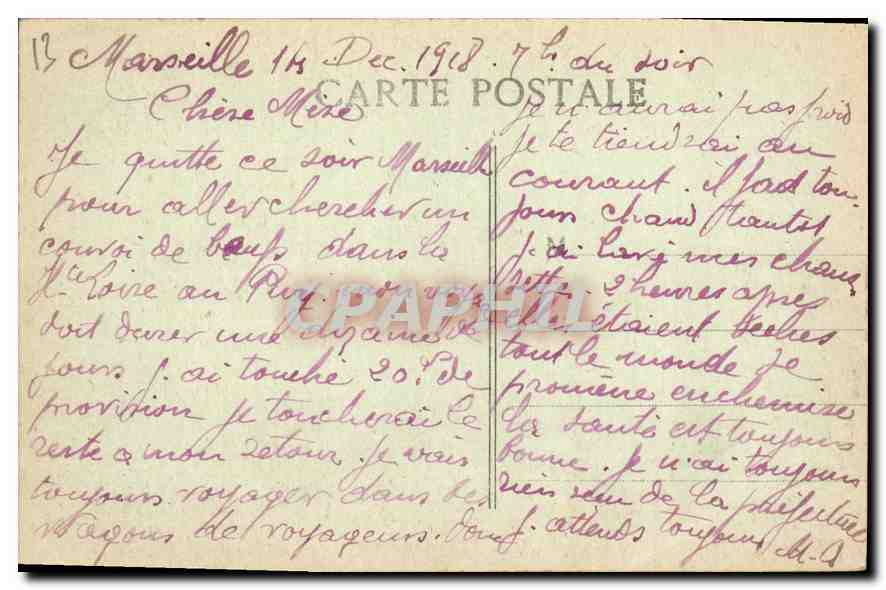 13
Marseille 14 Dec. 1918. 7h. du soir
CARTE POSTALE
Chère Mère
Je quitte ce soir Marseille
pour aller chercher un
convoi de bœufs dans la
Hte Loire au Puy. mon voyage
doit durer une dizaine de
jours j'ai touché 20f. de
provision je toucherai le
reste a mon retour. je vais
toujours voyager dans des
wagons de voyageurs. donc
je n'aurai pas froid
je te tiendrai au
courant. il fait tou-
jours chaud tantot
j'ai lavé mes chaus-
settes. 2 heures apres
elles étaient sèches
tout le monde se
promène en chemise
la santé est toujours
bonne. Je n'ai toujours
rien reçu de la préfecture
j'attends toujours
M-A
CPAPHIL